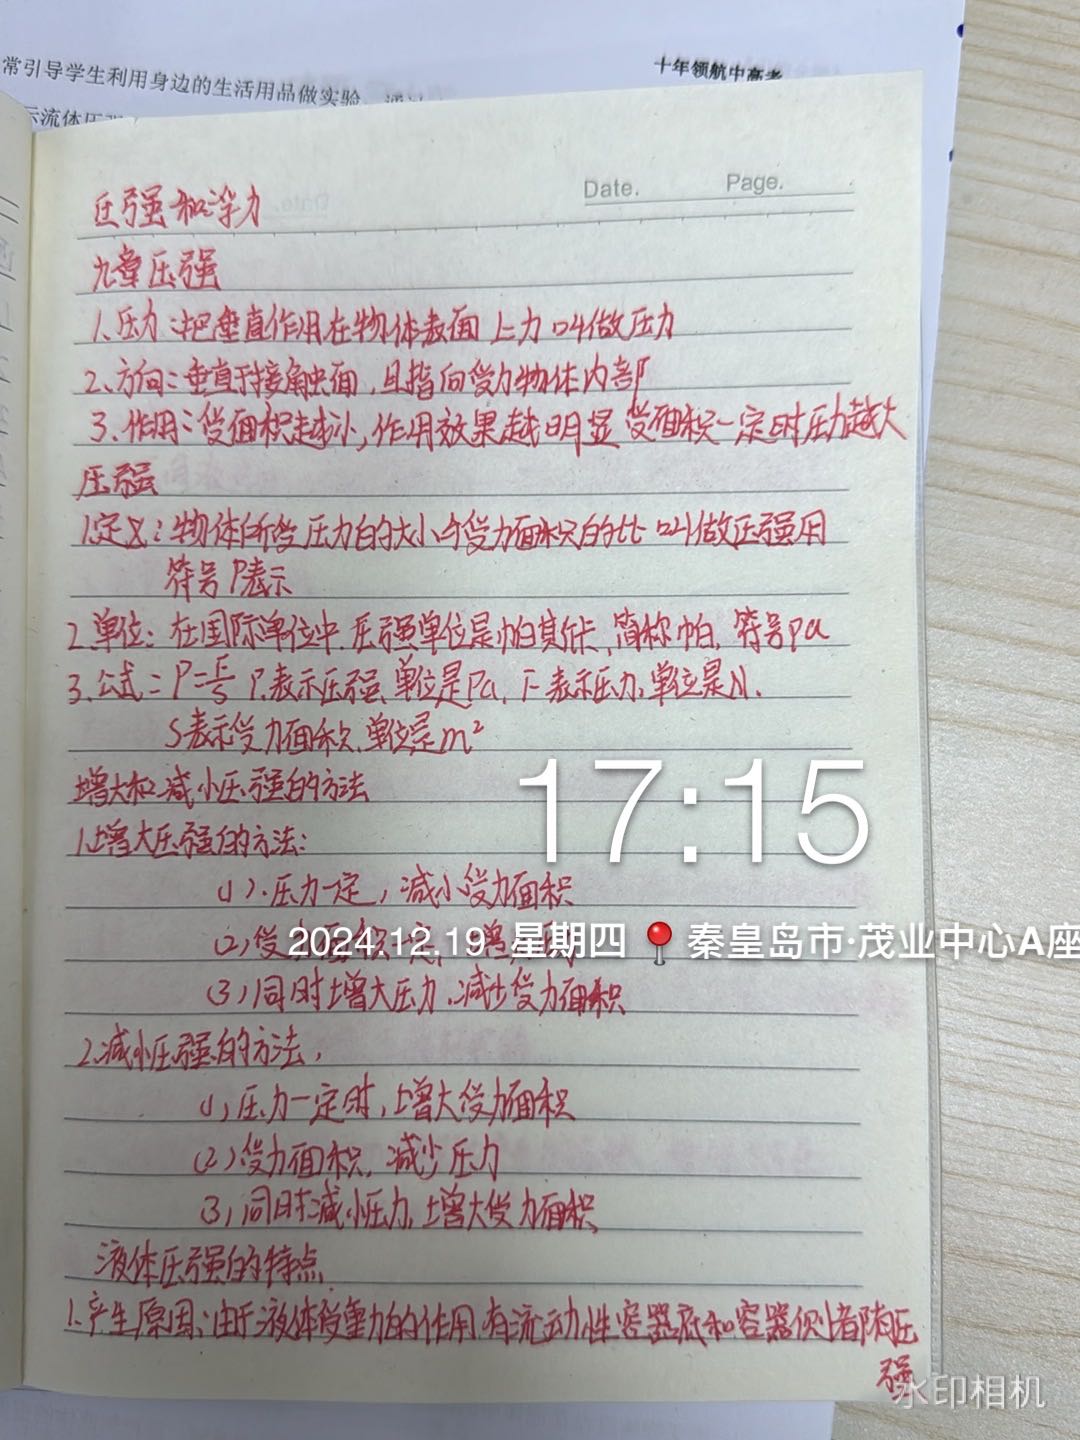 常引导学生利用身边的生活用品做实验
十年领航中高考
示流体压强
Date. Page.
压强和浮力
九章压强
1.压力:把垂直作用在物体表面上力叫做压力
2.方向:垂直于接触面,且指向受力物体内部
3.作用:受面积越小,作用效果越明显 受面积一定时压力越大
压强
1.定义:物体所受压力的大小与受力面积的比叫做压强用
符号P表示
2.单位:在国际单位中.压强单位是帕斯卡,简称帕,符号pa
3.公式:P=F/S P.表示压强,单位是Pa,F表示压力,单位是N.
S表示受力面积,单位是m²
增大和减小压强的方法
1.增大压强的方法:
17:15
(1).压力一定,减小受力面积
(2)受力面积一定,增
2024.12.19 星期四 秦皇岛市·茂业中心A座
(3)同时增大压力.减少受力面积
2.减小压强的方法,
(1)压力一定时,增大受力面积
(2)受力面积,减少压力
(3)同时减小压力,增大受力面积
液体压强的特点
1.产生原因:由于液体受重力的作用有流动性容器底和容器侧壁都有压
强
水印相机